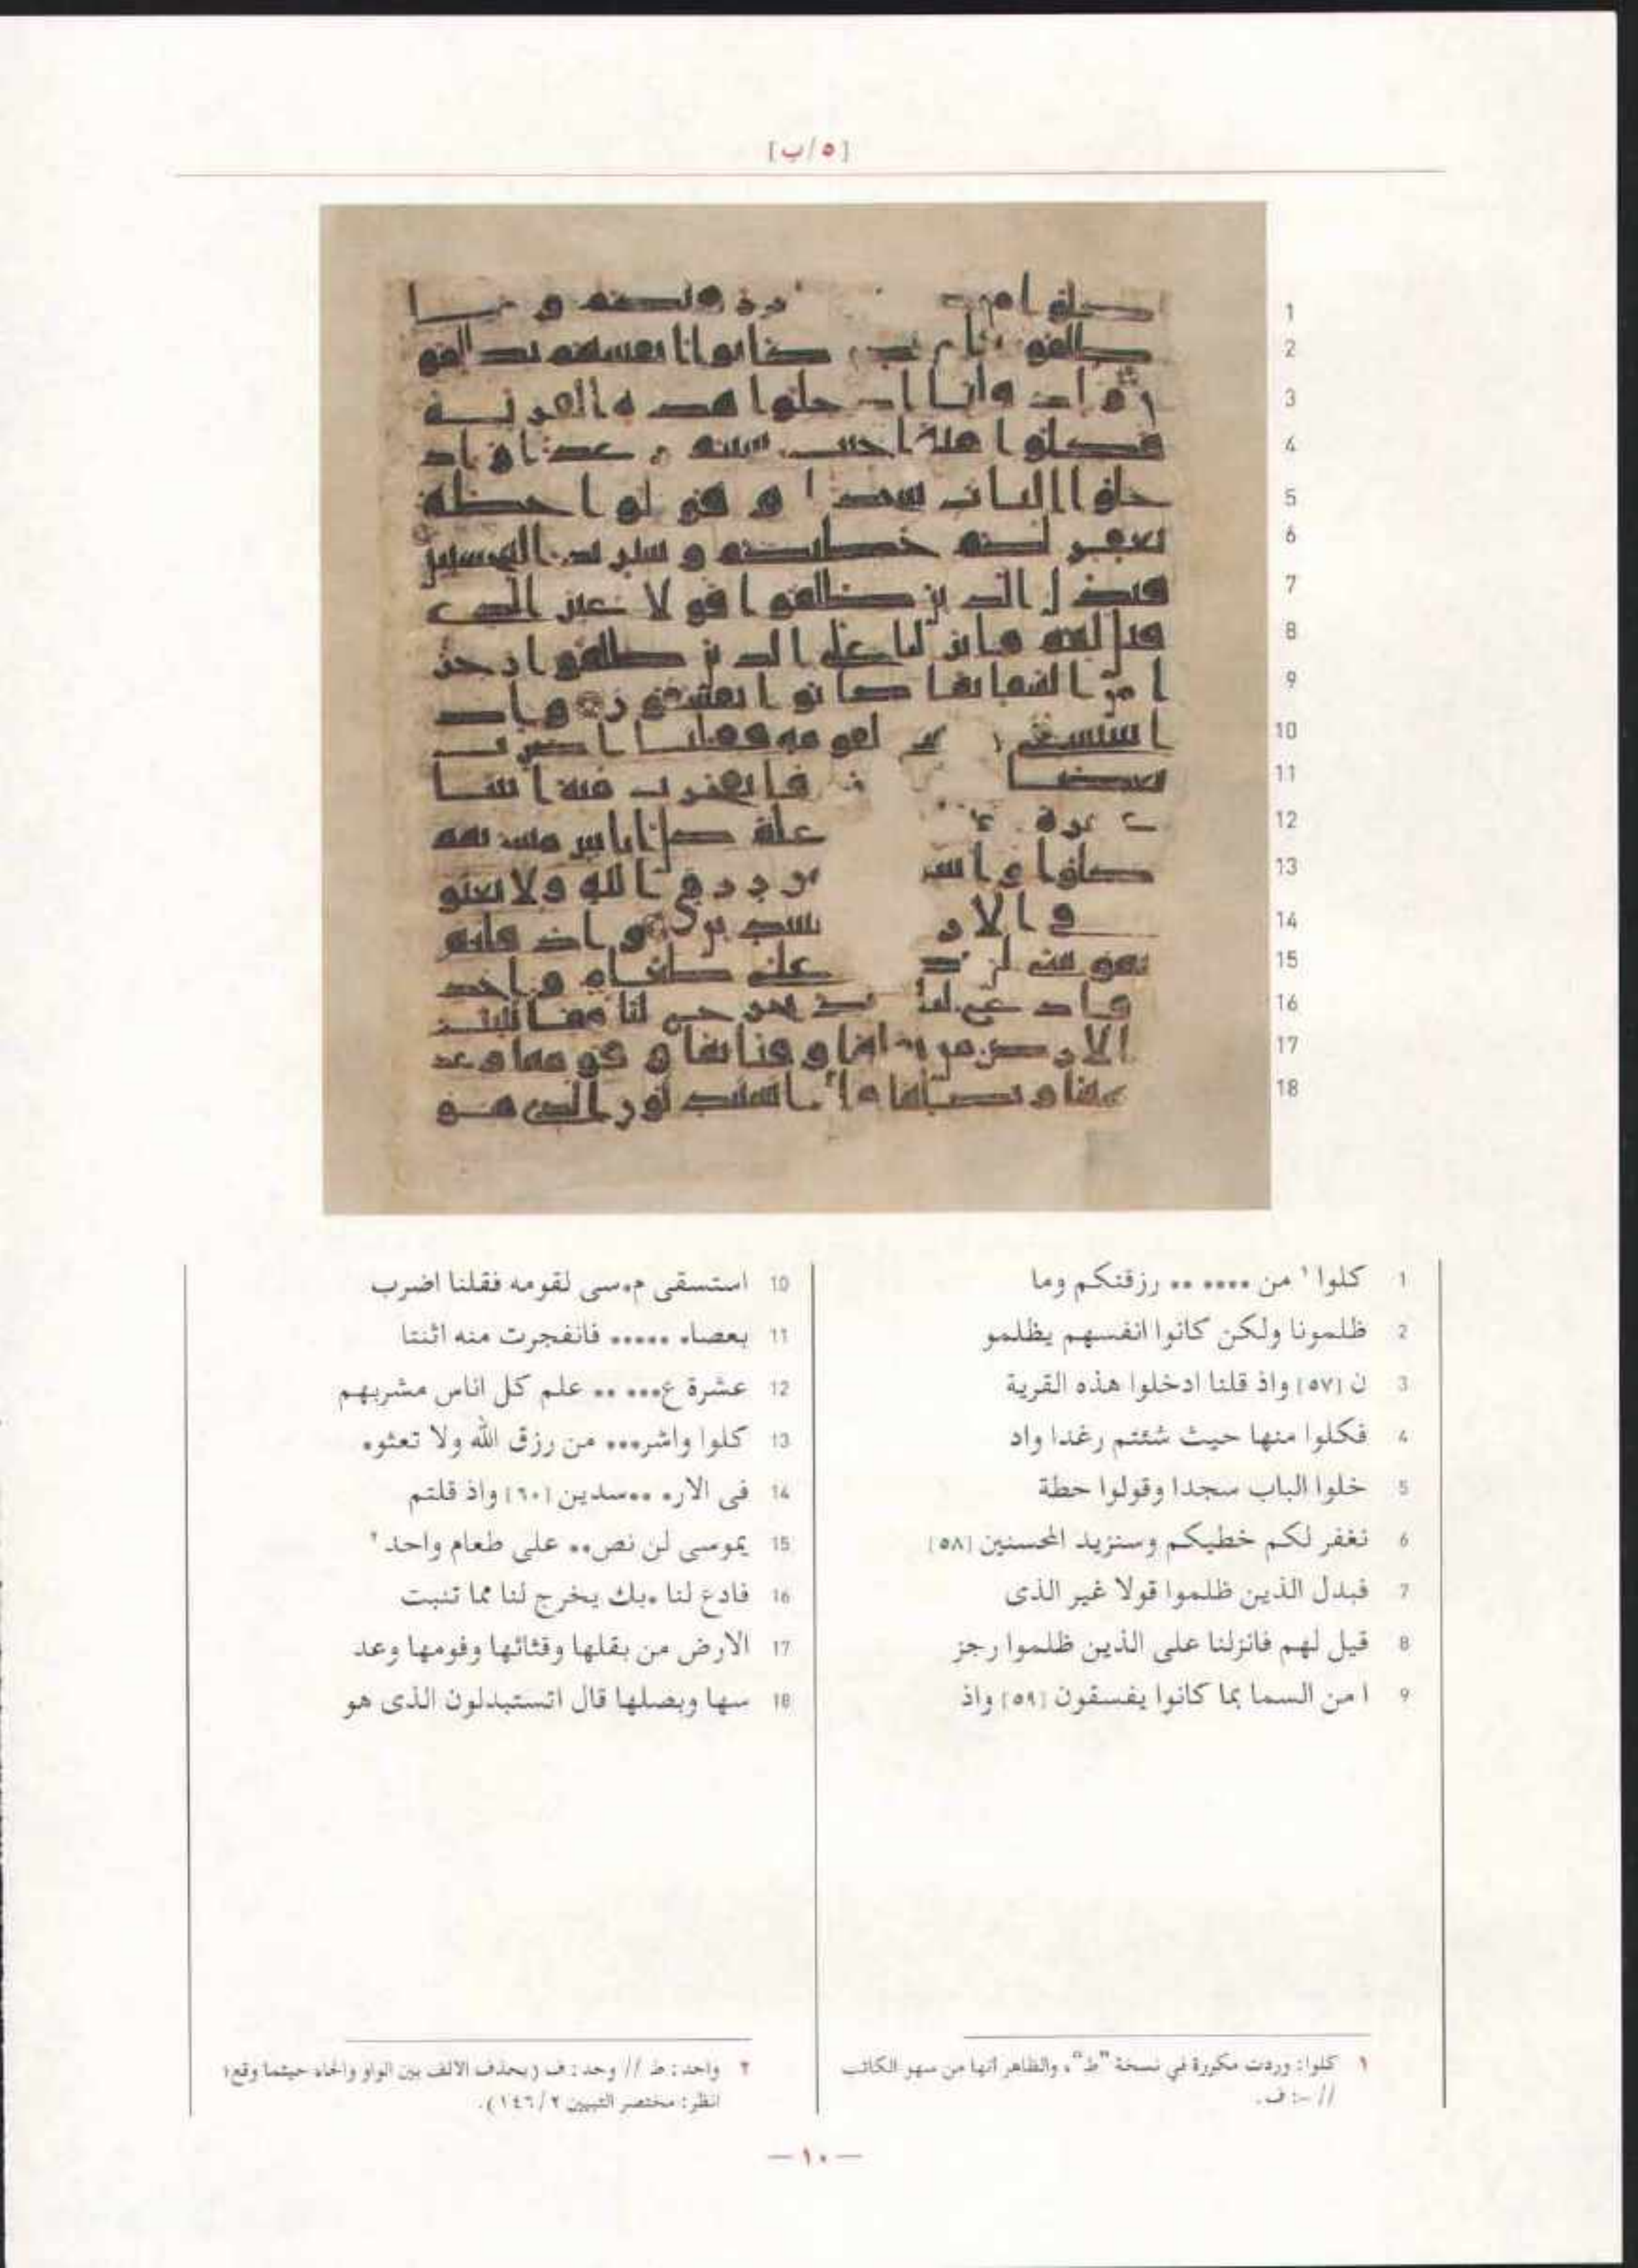 [٥/ب]
1 كلوا ١ من •••• •• رزقنكم وما
2 ظلمونا ولكن كانوا انفسهم يظلمو
3 ن [٥٧] واذ قلنا ادخلوا هذه القرية
4 فكلوا منها حيث شئتم رغدا واد
5 خلوا الباب سجدا وقولوا حطة
6 نغفر لكم خطيكم وسنزيد المحسنين [٥٨]
7 فبدل الذين ظلموا قولا غير الذى
8 قيل لهم فانزلنا على الذين ظلموا رجز
9 ا من السما بما كانوا يفسقون [٥٩] واذ
10 استسقى م•سى لقومه فقلنا اضرب
11 بعصا• ••••• فانفجرت منه اثنتا
12 عشرة ع••• •• علم كل اناس مشربهم
13 كلوا واشر••• من رزق الله ولا تعثو•
14 فى الار• ••سدين [٦٠] واذ قلتم
15 يموسى لن نص•• على طعام واحد ٢
16 فادع لنا •بك يخرج لنا مما تنبت
17 الارض من بقلها وقثائها وفومها وعد
18 سها وبصلها قال اتستبدلون الذى هو
١ كلوا: وردت مكررة في نسخة "ط"، والظاهر أنها من سهو الكاتب
// -: ف.
٢ واحد: ط // وحد: ف (بحذف الالف بين الواو والحاء حيثما وقع؛
انظر: مختصر التبيين ٢/١٤٦).
— ١٠ —